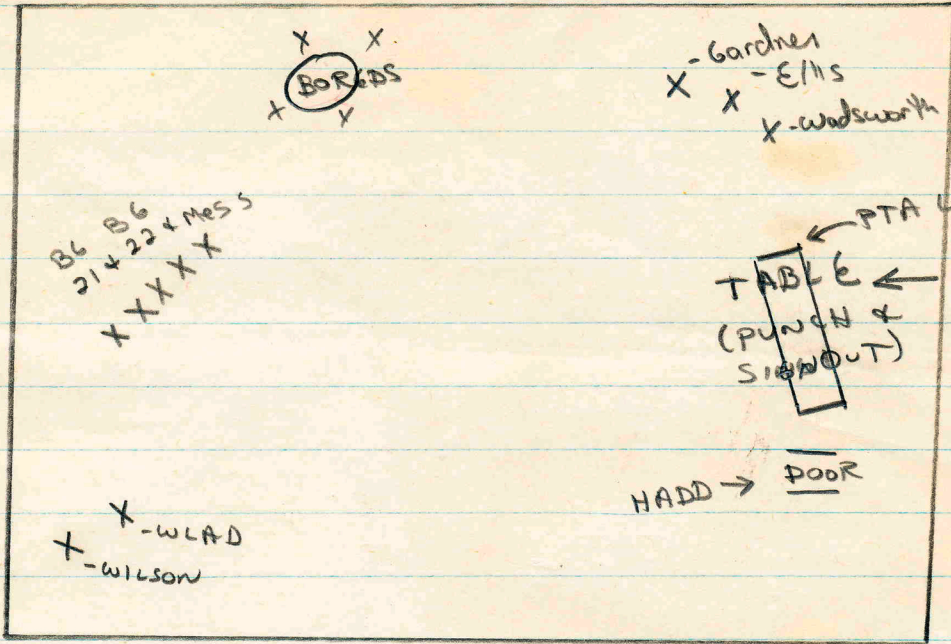 X X
BOREDS
X X
X -Gardner
X -Ellis
X -Wadsworth
B6 B6
21 & 22 & Mess
X X X X X
← PTA
TABLE ←
(PUNCH &
SIGNOUT)
HADD → DOOR
X -WLAD
X -WILSON